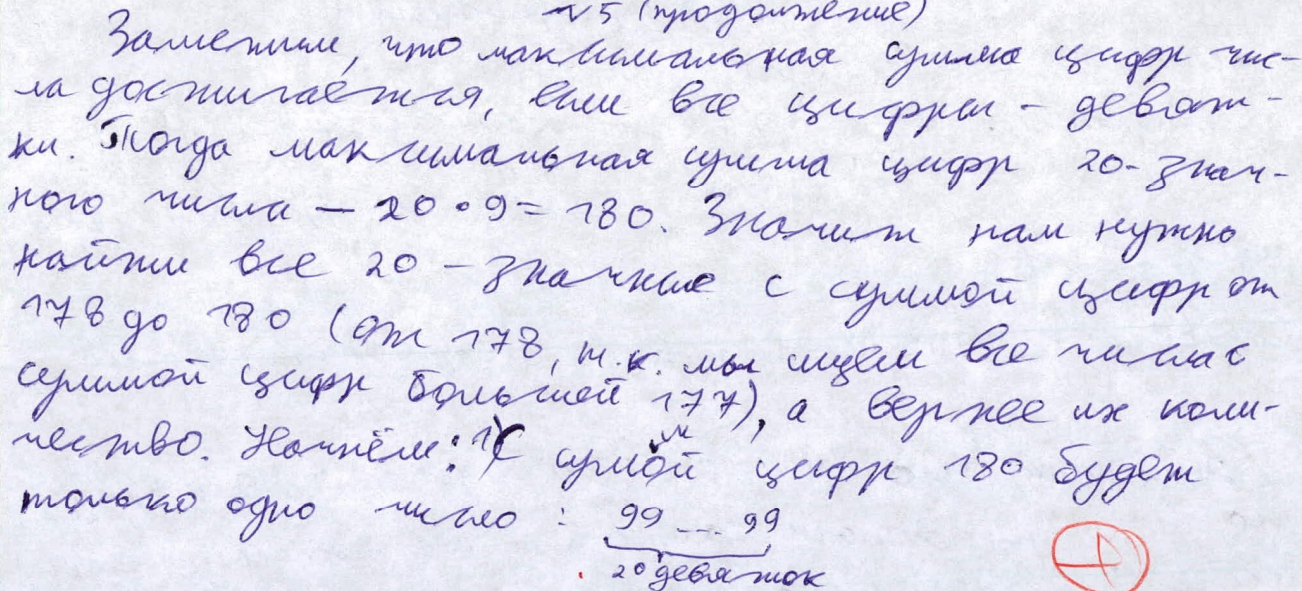 №5 (продолжение)
Заметим, что максимальная сумма цифр чис-
ла достигается, если все цифры - девят-
ки. Тогда максимальная сумма цифр 20-знач-
ного числа — 20•9=180. Значит нам нужно
найти все 20-значные с суммой цифр от
178 до 180 (от 178, т.к. мы ищем все числа с
суммой цифр большей 177), а вернее их коли-
чество. Начнём: 1) С суммой цифр 180 будет
только одно число: 99...99
20 девяток